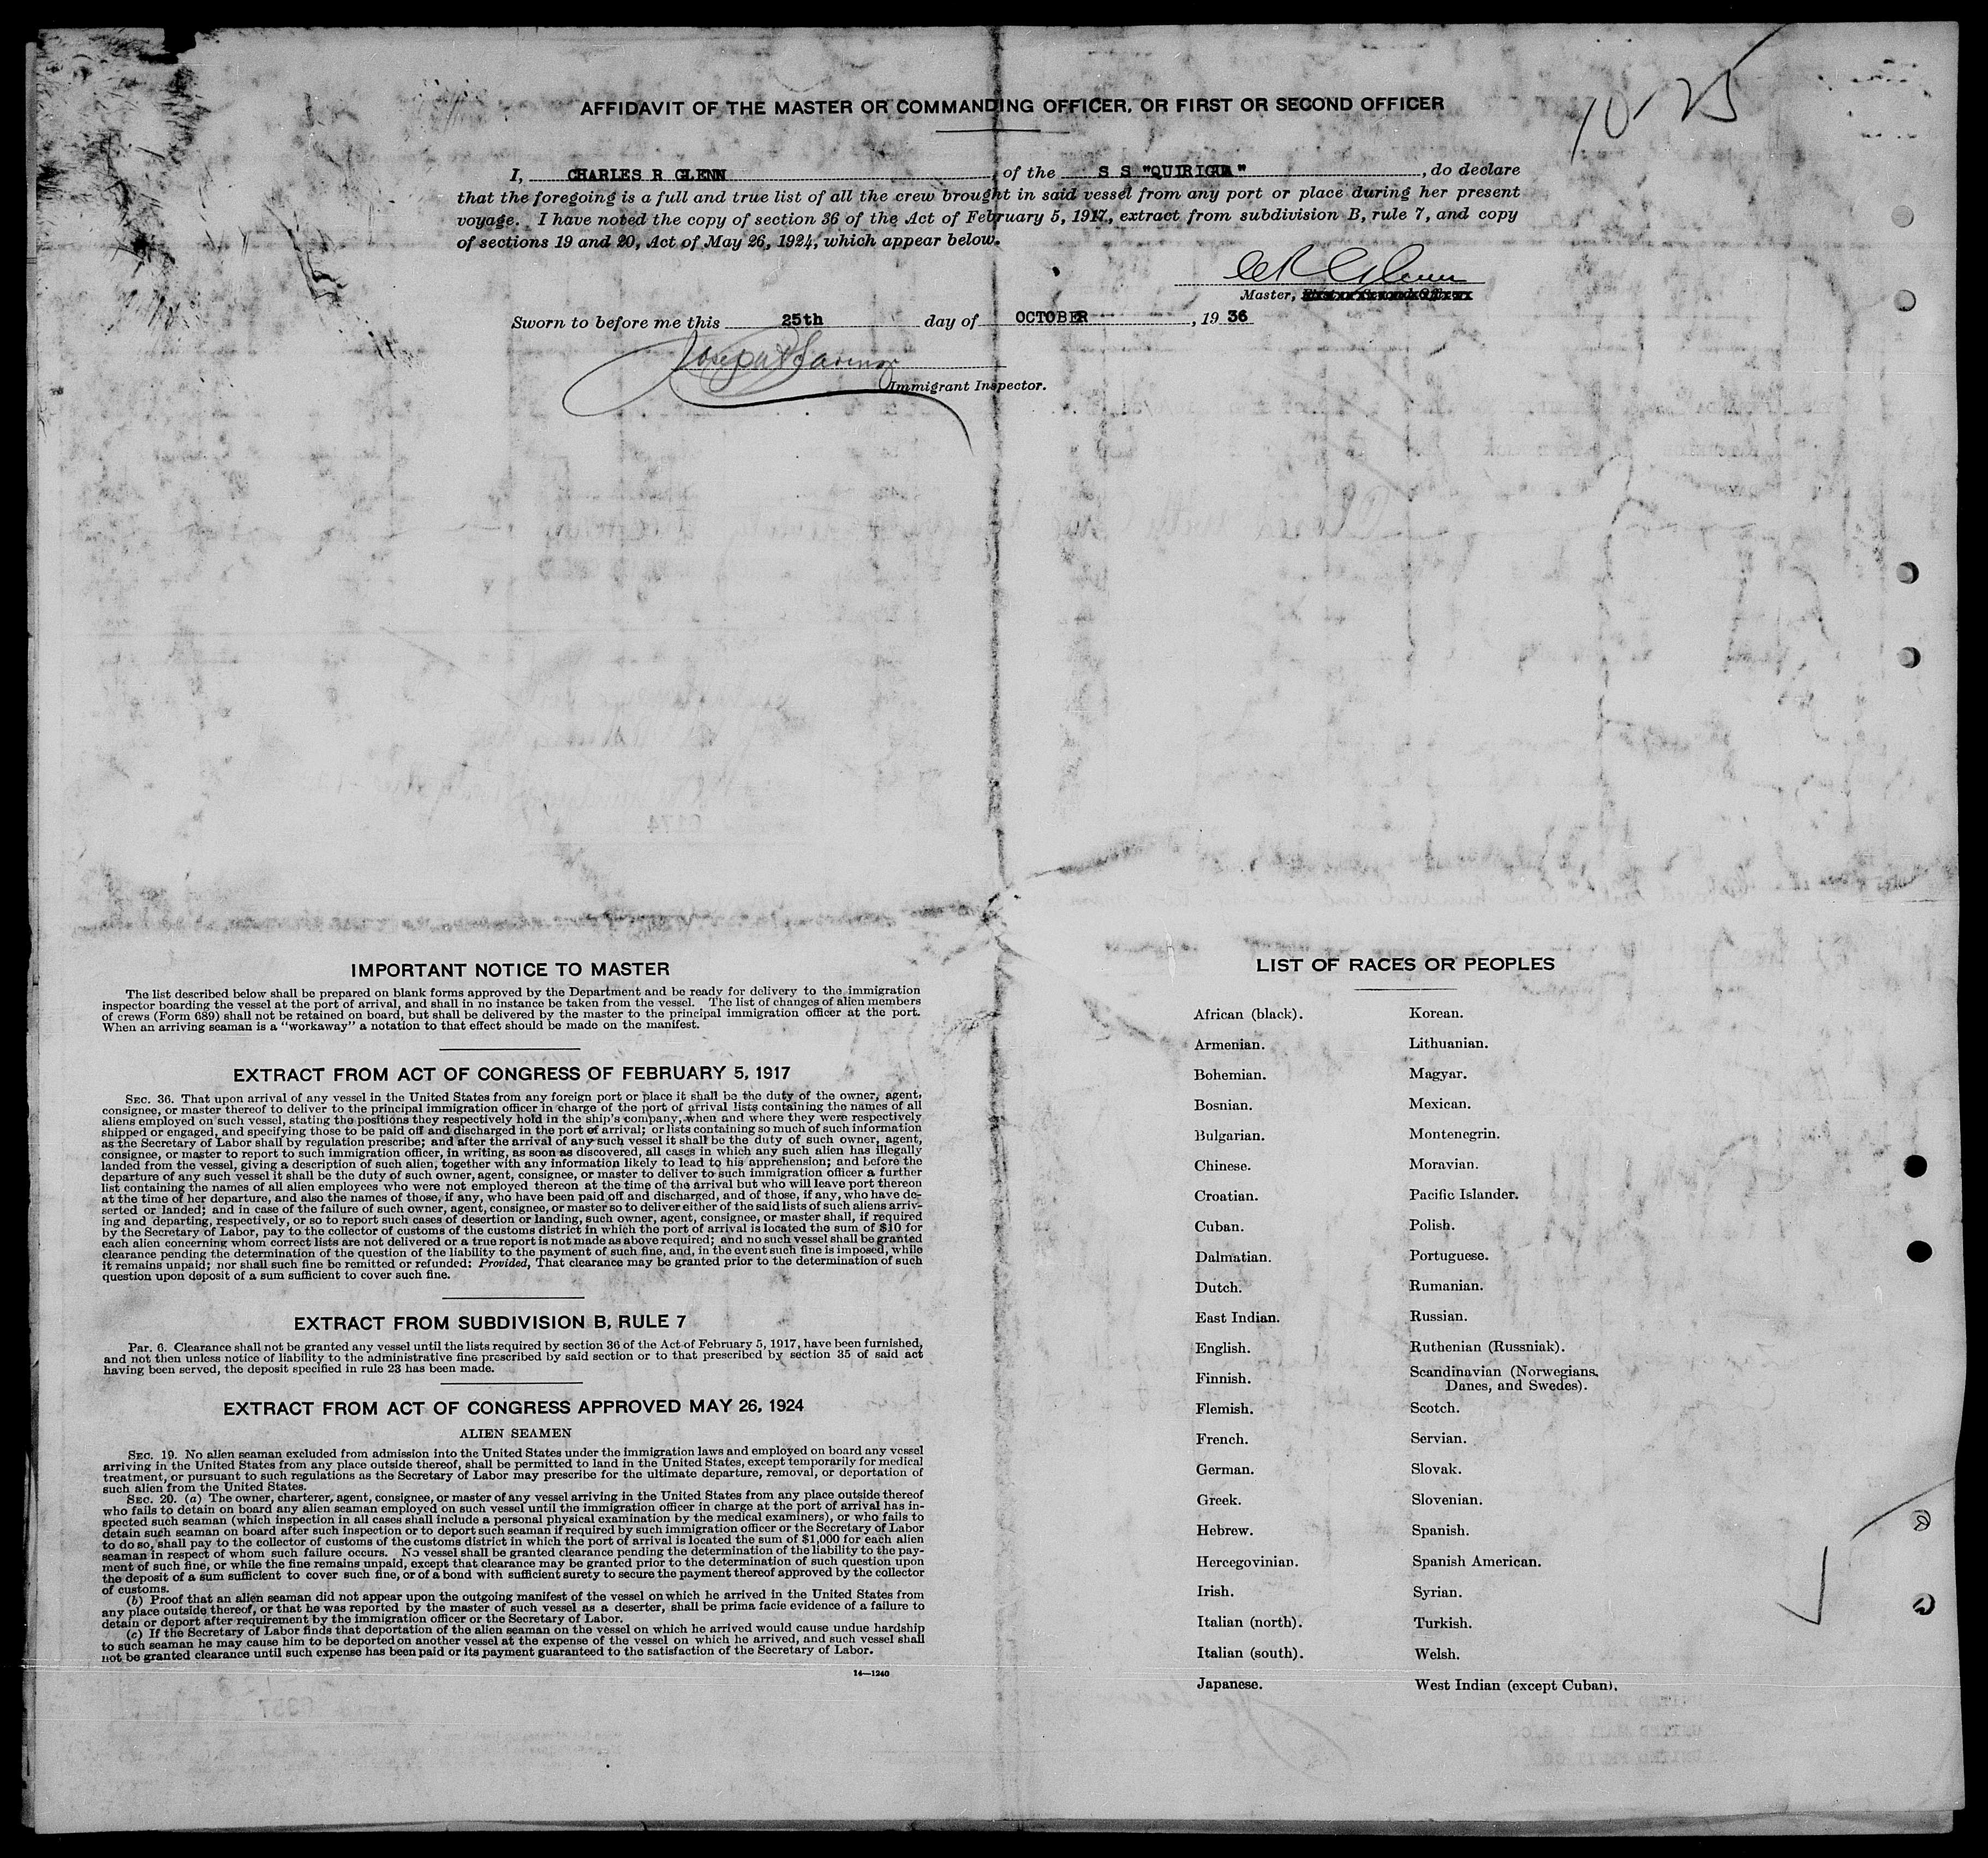 AFFIDAVIT OF THE MASTER OR COMMANDING OFFICER, OR FIRST OR SECOND OFFICER
10-25
I, CHARLES R GLENN, of the S S "QUIRIGUA", do declare
that the foregoing is a full and true list of all the crew brought in said vessel from any port or place during her present
voyage. I have noted the copy of section 36 of the Act of February 5, 1917, extract from subdivision B, rule 7, and copy
of sections 19 and 20, Act of May 26, 1924, which appear below.
C R Glenn
Master,
Sworn to before me this 25th day of OCTOBER, 19 36
Joseph
Immigrant Inspector.
IMPORTANT NOTICE TO MASTER
The list described below shall be prepared on blank forms approved by the Department and be ready for delivery to the immigration
inspector boarding the vessel at the port of arrival, and shall in no instance be taken from the vessel. The list of changes of alien members
of crews (Form 689) shall not be retained on board, but shall be delivered by the master to the principal immigration officer at the port.
When an arriving seaman is a "workaway" a notation to that effect should be made on the manifest.
EXTRACT FROM ACT OF CONGRESS OF FEBRUARY 5, 1917
SEC. 36. That upon arrival of any vessel in the United States from any foreign port or place it shall be the duty of the owner, agent,
consignee, or master thereof to deliver to the principal immigration officer in charge of the port of arrival lists containing the names of all
aliens employed on such vessel, stating the positions they respectively hold in the ship's company, when and where they were respectively
shipped or engaged, and specifying those to be paid off and discharged in the port of arrival; or lists containing so much of such information
as the Secretary of Labor shall by regulation prescribe; and after the arrival of any such vessel it shall be the duty of such owner, agent,
consignee, or master to report to such immigration officer, in writing, as soon as discovered, all cases in which any such alien has illegally
landed from the vessel, giving a description of such alien, together with any information likely to lead to his apprehension; and before the
departure of any such vessel it shall be the duty of such owner, agent, consignee, or master to deliver to such immigration officer a further
list containing the names of all alien employees who were not employed thereon at the time of the arrival but who will leave port thereon
at the time of her departure, and also the names of those, if any, who have been paid off and discharged, and of those, if any, who have de-
serted or landed; and in case of the failure of such owner, agent, consignee, or master so to deliver either of the said lists of such aliens arriv-
ing and departing, respectively, or so to report such cases of desertion or landing, such owner, agent, consignee, or master shall, if required
by the Secretary of Labor, pay to the collector of customs of the customs district in which the port of arrival is located the sum of $10 for
each alien concerning whom correct lists are not delivered or a true report is not made as above required; and no such vessel shall be granted
clearance pending the determination of the question of the liability to the payment of such fine, and, in the event such fine is imposed, while
it remains unpaid; nor shall such fine be remitted or refunded: Provided, That clearance may be granted prior to the determination of such
question upon deposit of a sum sufficient to cover such fine.
EXTRACT FROM SUBDIVISION B, RULE 7
PAR. 6. Clearance shall not be granted any vessel until the lists required by section 36 of the Act of February 5, 1917, have been furnished,
and not then unless notice of liability to the administrative fine prescribed by said section or to that prescribed by section 35 of said act
having been served, the deposit specified in rule 23 has been made.
EXTRACT FROM ACT OF CONGRESS APPROVED MAY 26, 1924
ALIEN SEAMEN
SEC. 19. No alien seaman excluded from admission into the United States under the immigration laws and employed on board any vessel
arriving in the United States from any place outside thereof, shall be permitted to land in the United States, except temporarily for medical
treatment, or pursuant to such regulations as the Secretary of Labor may prescribe for the ultimate departure, removal, or deportation of
such alien from the United States.
SEC. 20. (a) The owner, charterer, agent, consignee, or master of any vessel arriving in the United States from any place outside thereof
who fails to detain on board any alien seaman employed on such vessel until the immigration officer in charge at the port of arrival has in-
spected such seaman (which inspection in all cases shall include a personal physical examination by the medical examiners), or who fails to
detain such seaman on board after such inspection or to deport such seaman if required by such immigration officer or the Secretary of Labor
to do so, shall pay to the collector of customs of the customs district in which the port of arrival is located the sum of $1,000 for each alien
seaman in respect of whom such failure occurs. No vessel shall be granted clearance pending the determination of the liability to the pay-
ment of such fine, or while the fine remains unpaid, except that clearance may be granted prior to the determination of such question upon
the deposit of a sum sufficient to cover such fine, or of a bond with sufficient surety to secure the payment thereof approved by the collector
of customs.
(b) Proof that an alien seaman did not appear upon the outgoing manifest of the vessel on which he arrived in the United States from
any place outside thereof, or that he was reported by the master of such vessel as a deserter, shall be prima facie evidence of a failure to
detain or deport after requirement by the immigration officer or the Secretary of Labor.
(c) If the Secretary of Labor finds that deportation of the alien seaman on the vessel on which he arrived would cause undue hardship
to such seaman he may cause him to be deported on another vessel at the expense of the vessel on which he arrived, and such vessel shall
not be granted clearance until such expense has been paid or its payment guaranteed to the satisfaction of the Secretary of Labor.
14—1240
LIST OF RACES OR PEOPLES
African (black).
Armenian.
Bohemian.
Bosnian.
Bulgarian.
Chinese.
Croatian.
Cuban.
Dalmatian.
Dutch.
East Indian.
English.
Finnish.
Flemish.
French.
German.
Greek.
Hebrew.
Hercegovinian.
Irish.
Italian (north).
Italian (south).
Japanese.
Korean.
Lithuanian.
Magyar.
Mexican.
Montenegrin.
Moravian.
Pacific Islander.
Polish.
Portuguese.
Rumanian.
Russian.
Ruthenian (Russniak).
Scandinavian (Norwegians,
Danes, and Swedes).
Scotch.
Servian.
Slovak.
Slovenian.
Spanish.
Spanish American.
Syrian.
Turkish.
Welsh.
West Indian (except Cuban).